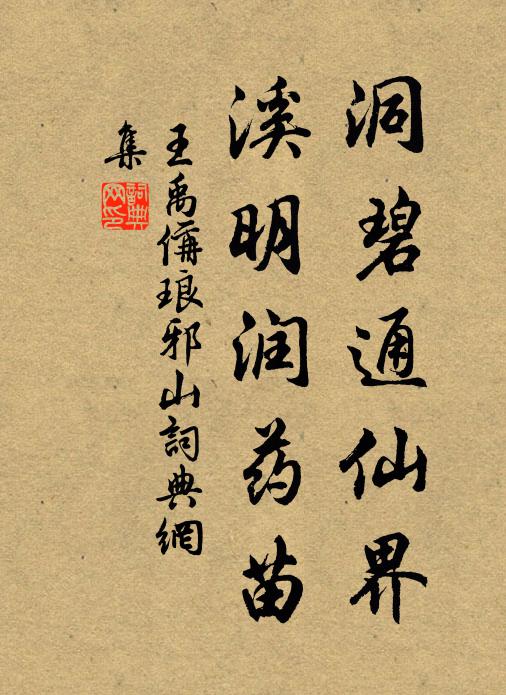 洞碧通仙界
溪明润药苗
王禹偁琅邪山詞典網
集
詞典網印